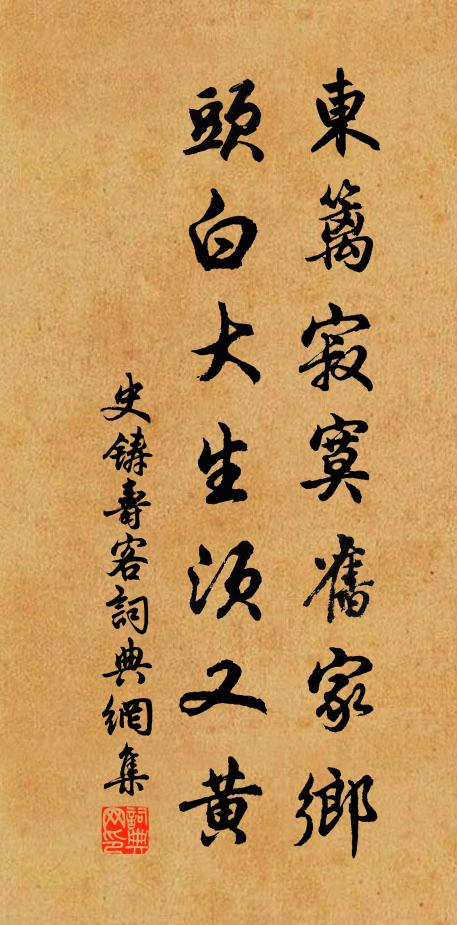 東籬寂寞舊家鄉
頭白大生須又黃
史鑄壽客詞典網集
詞典网印